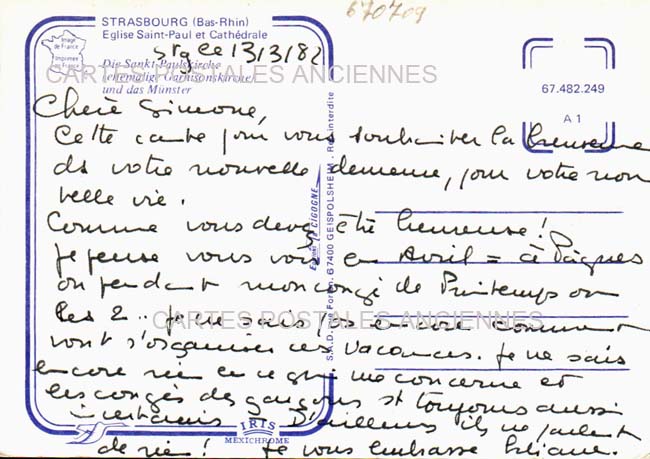 670709
STRASBOURG (Bas-Rhin)
Eglise Saint-Paul et Cathédrale
Stg le 13/3/82
Image de France
Imprimée en France
Die Sankt-Paulskirche
(ehemalige Garnisonskirche)
und das Münster
CARTES POSTALES ANCIENNES
67.482.249
A 1
Chère Simone,
Cette carte pour vous souhaiter la bienvenue
ds votre nouvelle demeure, pour votre nou
velle vie.
Comme vous devez être heureuse!
Je pense vous voir en Avril = à Pâques
ou pendant mon congé de Printemps ou
les 2.. je ne sais pas encore comment
CARTES POSTALES ANCIENNES
vont s'organiser ces vacances. Je ne sais
encore rien en ce qui me concerne et
les congés des garçons st toujours aussi
incertains D'ailleurs ils ne parlent
de rien! Je vous embrasse Liliane.
IRIS
MEXICHROME
Editions "La CIGOGNE"
67400 GEISPOLSHEIM - Rep. interdite